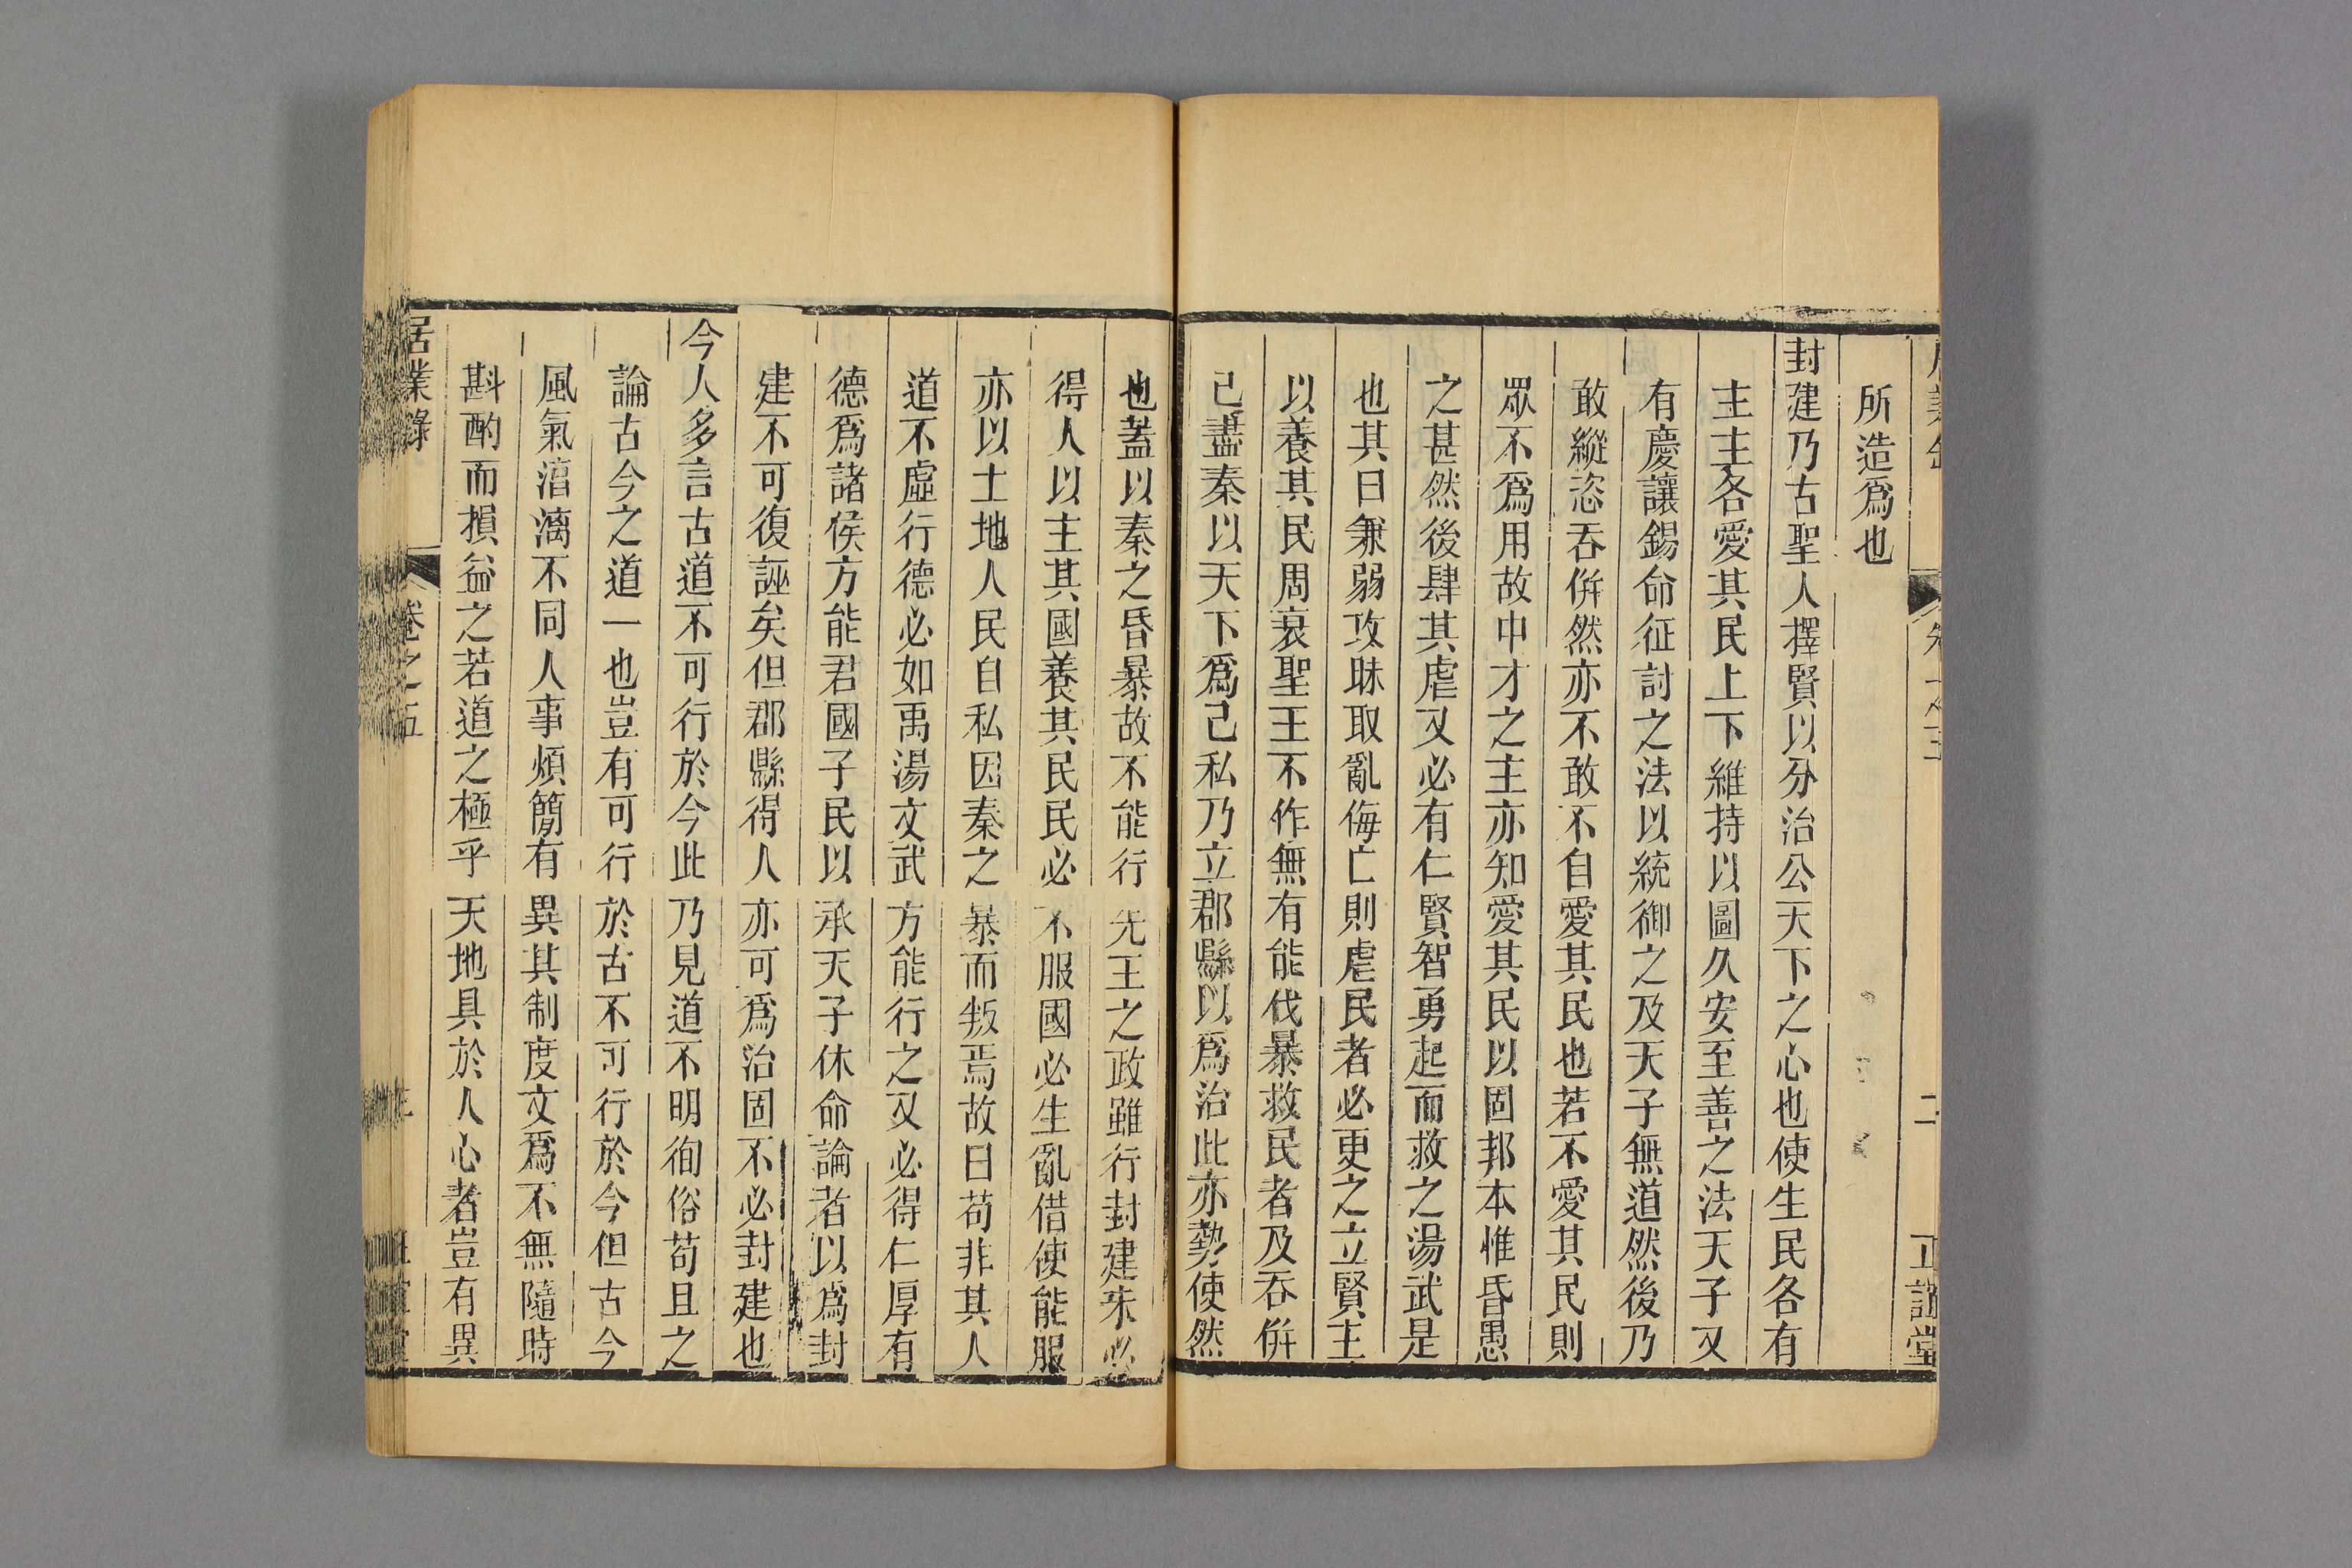 所造爲也
封建乃古聖人擇賢以分治公天下之心也使生民各有
主主各愛其民上下維持以圖久安至善之法天子又
有慶讓錫命征討之法以統御之及天子無道然後乃
敢縱恣吞併然亦不敢不自愛其民也若不愛其民則
眾不爲用故中才之主亦知愛其民以固邦本惟昏愚
之甚然後肆其虐又必有仁賢智勇起而救之湯武是
也其曰兼弱攻昧取亂侮亡則虐民者必更之立賢主
以養其民周衰聖王不作無有能伐暴救民者及吞併
己盡秦以天下爲己私乃立郡縣以爲治此亦勢使然
也蓋以秦之昏暴故不能行先王之政雖行封建未必
得人以主其國養其民民必不服國必生亂借使能服
亦以土地人民自私因秦之暴而叛焉故曰苟非其人
道不虛行德必如禹湯文武方能行之又必得仁厚有
德爲諸侯方能君國子民以承天子休命論者以爲封
建不可復誣矣但郡縣得人亦可爲治固不必封建也
今人多言古道不可行於今此乃見道不明徇俗苟且之
論古今之道一也豈有可行於古不可行於今但古今
風氣淳漓不同人事煩簡有異其制度文爲不無隨時
斟酌而損益之若道之極乎天地具於人心者豈有異
居業錄
卷之五